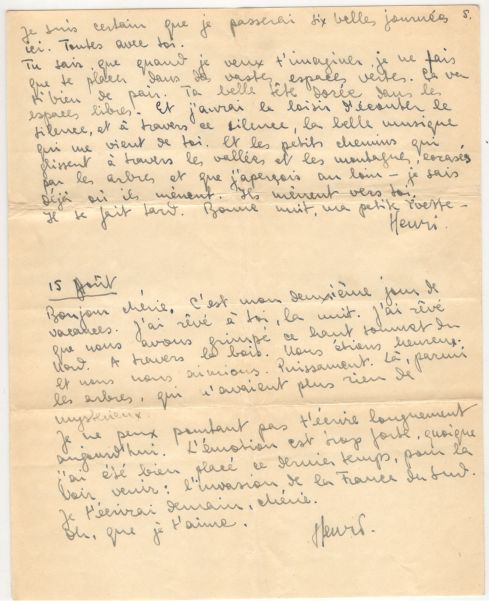 Je suis certain que je passerai six belles journées 5.
ici. Toutes avec toi.
Tu sais que quand je veux t'imaginer je ne fais
que te placer dans des vastes espaces vertes. Ça va
si bien de pair. Ta belle tête dorée dans les
espaces libres. Et j'aurai le loisir d'écouter le
silence, et à travers ce silence, la belle musique
qui me vient de toi. Et les petits chemins qui
glissent à travers les vallées et les montagnes, écrasés
par les arbres et que j'aperçois au loin – je sais
déjà où ils mènent. Ils mènent vers toi.
Il se fait tard. Bonne nuit, ma petite Yvette –
Henri.
15 Août
Bonjour chérie. C'est mon deuxième jour de
vacances. J'ai rêvé à toi, la nuit. J'ai rêvé
que nous avons grimpé ce haut sommet du
Nord. A travers le bois. Nous étions heureux.
Et nous nous aimions. Puissament. Là, parmi
les arbres, qui n'avaient plus rien de
mystérieux.
Je ne peux pourtant pas t'écrire longuement
aujourd'hui. L'émotion est trop forte, quoique
j'ai été bien placé ce dernier temps, pour la
voir venir : l'invasion de la France du Sud.
Je t'écrirai demain, chérie.
Oh, que je t'aime.
Henri.